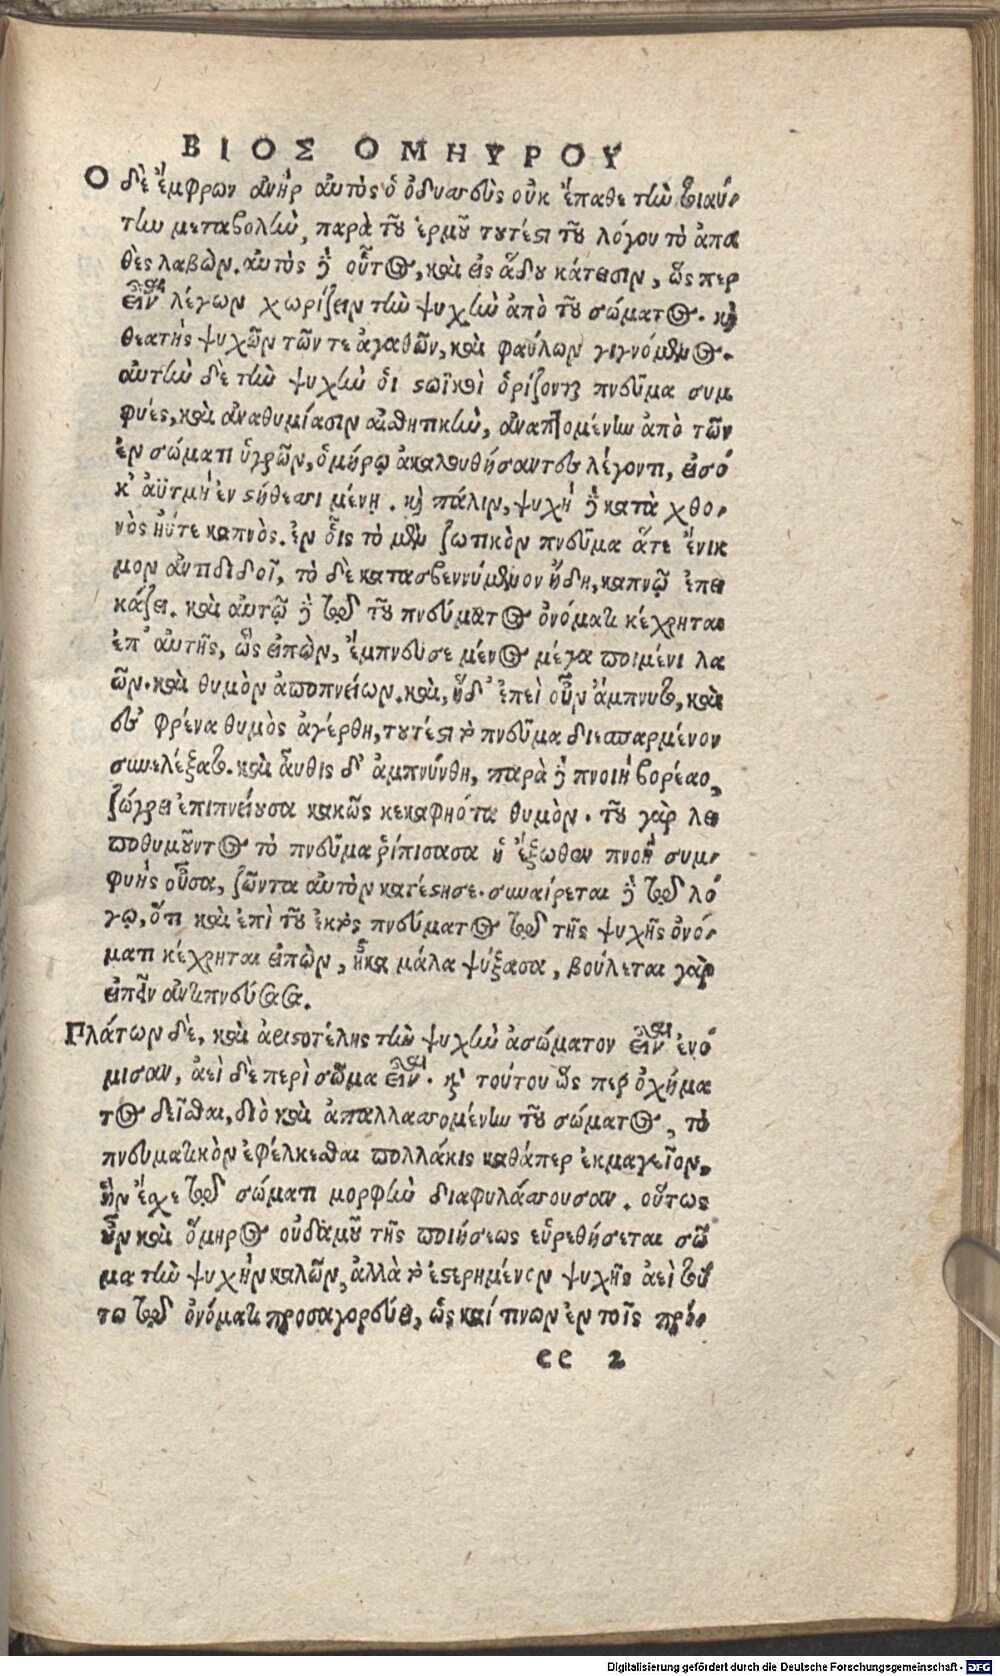 ΒΙΟΣ ΟΜΗΥΡΟΥ
Ο δὲ ἔμφρων ἀνὴρ αὐτὸς ὁ ὀδυσσεὺς οὐκ ἔπαθε τὴν τοιαύ-
την μεταβολὴν, παρὰ τοῦ ἑρμοῦ τουτέστι τοῦ λόγου τὸ ἀπα
θὲς λαβὼν. αὐτὸς δὲ οὗτος, καὶ εἰς ἅδου κάτεισιν, ὥς περ
εἶναι λέγων χωρίζειν τὴν ψυχὴν ἀπὸ τοῦ σώματος. καὶ
θεατὴς ψυχῶν τῶν τε ἀγαθῶν, καὶ φαύλων γιγνόμενος.
αὐτὴν δὲ τὴν ψυχὴν ὁι στωϊκοὶ ὁρίζονται πνεῦμα συμ
φυὲς, καὶ ἀναθυμίασιν αἰσθητικὴν, ἀναπτομένην ἀπὸ τῶν
ἐν σώματι ὑγρῶν, ὁμήρῳ ἀκαλουθήσαντες λέγοντι, εἰσό
κ' ἀϋτμὴ ἐν στήθεσσι μένῃ. καὶ πάλιν, ψυχὴ δὲ κατὰ χθο-
νὸς ἠΰτε καπνὸς. ἐν οἷς τὸ μὲν ζωτικὸν πνεῦμα ἅτε ἔνικ
μον ἀντιδιδοῖ, τὸ δὲ κατασβεννύμενον ἤδη, καπνῷ ἐπει
κάζει. καὶ αὐτῷ δὲ τῷ τοῦ πνεύματος ὀνόματι κέχρηται
ἐπ' αὐτῆς, ὡς εἰπὼν, ἔμπνευσε μένος μέγα ποιμένι λα
ῶν. καὶ θυμὸν ἀποπνείων. καὶ, ἥδ' ἐπεὶ οὖν ἄμπνυτο, καὶ
ἐς φρένα θυμὸς ἀγέρθη, τουτέστι τὸ πνεῦμα διεσπαρμένον
συνελέξατο. καὶ αὖθις δ' ἀμπνύνθη, παρὰ δὲ πνοιὴ βορέαο,
ζώγρει ἐπιπνείουσα κακῶς κεκαφηότα θυμὸν. τοῦ γὰρ λει
ποθυμοῦντος τὸ πνεῦμα ῥίπισασα ἡ ἔξωθεν πνοὴ συμ-
φυὴς οὖσα, ζῶντα αὐτὸν κατέστησε. συναίρεται δὲ τῷ λό
γῳ, ὅτι καὶ ἐπὶ τοῦ ἐκτὸς πνεύματος τῷ τῆς ψυχῆς ὀνό-
ματι κέχρηται εἰπὼν, ἧκα μάλα ψύξασα, βούλεται γὰρ
εἰπεῖν ἀντιπνεύσασα.
Πλάτων δὲ, καὶ ἀριστοτέλης τὴν ψυχὴν ἀσώματον εἶναι ἐνό
μισαν, ἀεὶ δὲ περὶ σῶμα εἶναι. καὶ τούτου ὥς περ ὀχήμα
τος δεῖσθαι, διὸ καὶ ἀπαλλασσομένην τοῦ σώματος, τὸ
πνευματικὸν ἐφέλκεσθαι πολλάκις καθάπερ ἐκμαγεῖον,
ἣν ἔχε τῷ σώματι μορφὴν διαφυλάσσουσαν. οὕτως
οὖν καὶ ὅμηρος οὐδαμοῦ τῆς ποιήσεως εὑρεθήσεται σῶ
μα τὴν ψυχὴν καλῶν, ἀλλὰ τὸ ἐστερημένον ψυχῆς ἀεὶ τού
τω τῷ ὀνόματι προσαγορεύει, ὡς καί τινων ἐν τοῖς πρό-
cc 2
Digitalisierung gefördert durch die Deutsche Forschungsgemeinschaft - DFG